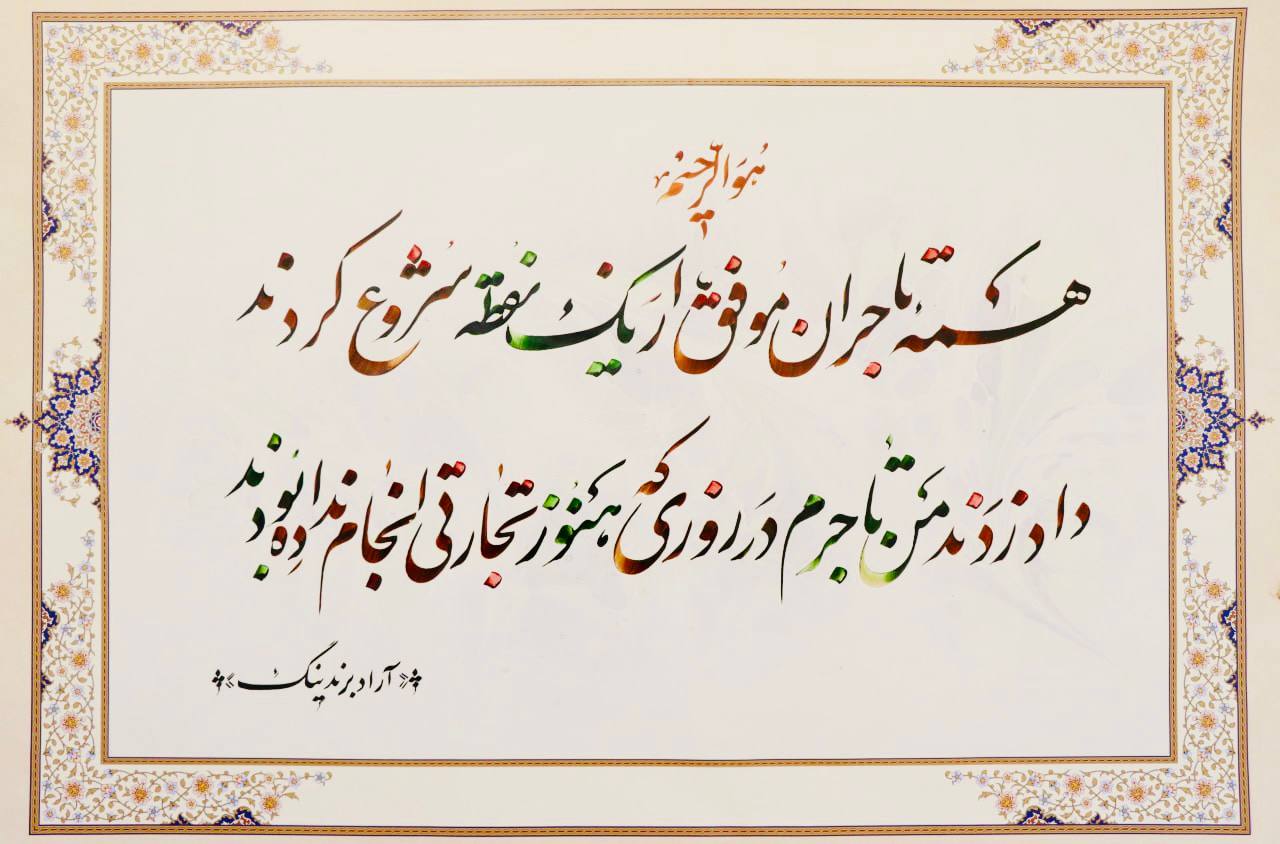 هو الرحیم
همه تاجران موفق از یک نقطه شروع کردند
داد زدند من تاجرم در روزی که هنوز تجارتی انجام نداده بودند
«آراد برندینگ»